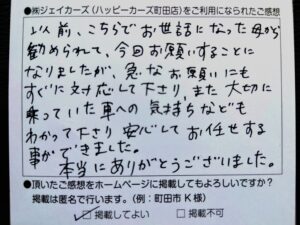 ●㈱ジェイカーズ(ハッピーカーズ町田店)をご利用になられたご感想
以前、こちらでお世話になった母から
勧められて、今回お願いすることに
なりましたが、急なお願いにも
すぐに対応して下さり、また大切に
乗っていた車への気持ちなども
わかって下さり安心してお任せする
事ができました。
本当にありがとうございました。
●頂いたご感想をホームページに掲載してもよろしいですか?
掲載は匿名で行います。(例:町田市K様)
☑掲載してよい □掲載不可